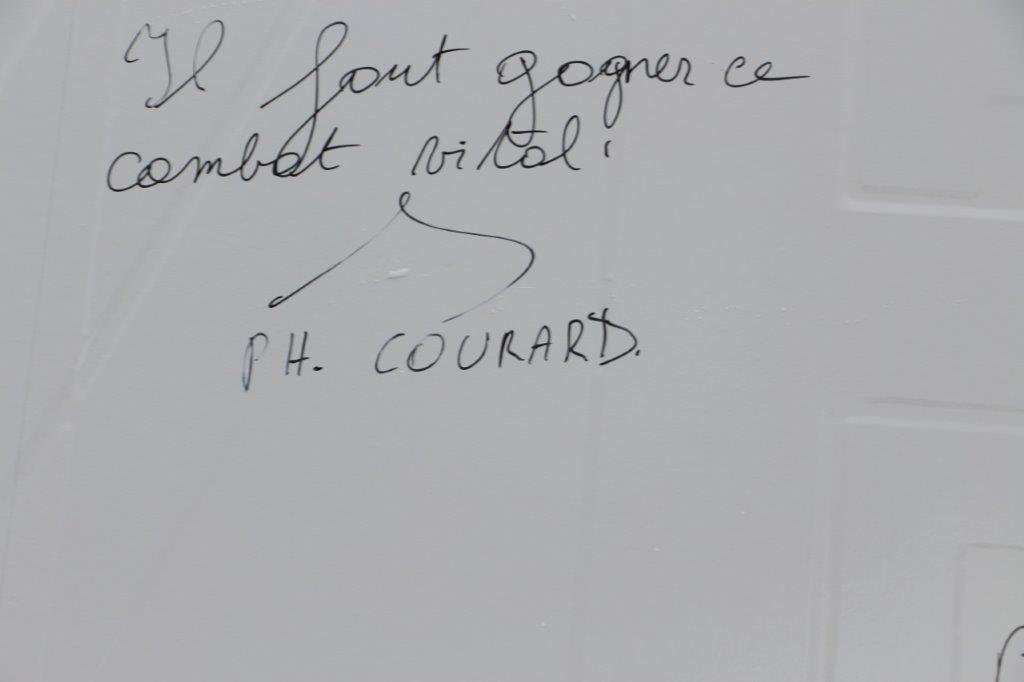 Il faut gagner ce
combat vital!
PH. COURARD.